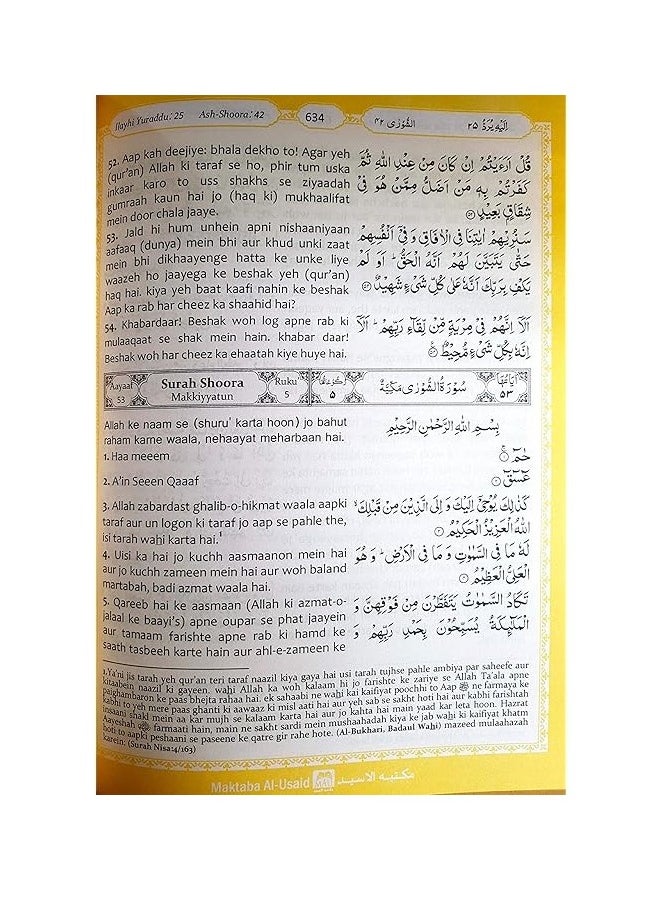 Ilayhi Yuraddu: 25 Ash-Shoora: 42 634 الشُّوْرٰى ۴۲ اِلَيْهِ يُرَدُّ ۲۵
52. Aap kah deejiye: bhala dekho to! Agar yeh
(qur'an) Allah ki taraf se ho, phir tum uska
inkaar karo to uss shakhs se ziyaadah
gumraah kaun hai jo (haq ki) mukhaalifat
mein door chala jaaye.
قُلْ اَرَءَيْتُمْ اِنْ كَانَ مِنْ عِنْدِ اللّٰهِ ثُمَّ
كَفَرْتُمْ بِهٖ مَنْ اَضَلُّ مِمَّنْ هُوَ فِيْ
شِقَاقٍۭ بَعِيْدٍ ۵۲
53. Jald hi hum unhein apni nishaaniyaan
aafaaq (dunya) mein bhi aur khud unki zaat
mein bhi dikhaayenge hatta ke unke liye
waazeh ho jaayega ke beshak yeh (qur'an)
haq hai. kiya yeh baat kaafi nahin ke beshak
Aap ka rab har cheez ka shaahid hai?
سَنُرِيْهِمْ اٰيٰتِنَا فِي الْاٰفَاقِ وَفِيْٓ اَنْفُسِهِمْ
حَتّٰى يَتَبَيَّنَ لَهُمْ اَنَّهُ الْحَقُّ ؕ اَوَ لَمْ
يَكْفِ بِرَبِّكَ اَنَّهٗ عَلٰى كُلِّ شَيْءٍ شَهِيْدٌ ۵۳
54. Khabardaar! Beshak woh log apne rab ki
mulaaqaat se shak mein hain. khabar daar!
Beshak woh har cheez ka ehaatah kiye huye hai.
اَلَآ اِنَّهُمْ فِيْ مِرْيَةٍ مِّنْ لِّقَآءِ رَبِّهِمْ ؕ اَلَآ
اِنَّهٗ بِكُلِّ شَيْءٍ مُّحِيْطٌ ۵۴
Aayaat 53 Surah Shoora Makkiyyatun Ruku 5 رُكُوْعَاتُهَا ۵ سُوْرَةُ الشُّوْرٰى مَكِّيَّةٌ اٰيَاتُهَا ۵۳
Allah ke naam se (shuru' karta hoon) jo bahut
raham karne waala, nehaayat meharbaan hai.
بِسْمِ اللّٰهِ الرَّحْمٰنِ الرَّحِيْمِ
1. Haa meeem
حٰمٓ ۱
2. A'in Seeen Qaaaf
عٓسٓقٓ ۲
3. Allah zabardast ghalib-o-hikmat waala aapki
taraf aur un logon ki taraf jo aap se pahle the,
isi tarah wahi karta hai.1
كَذٰلِكَ يُوْحِيْٓ اِلَيْكَ وَ اِلَى الَّذِيْنَ مِنْ قَبْلِكَ ۙ
اللّٰهُ الْعَزِيْزُ الْحَكِيْمُ ۳
4. Uisi ka hai jo kuchh aasmaanon mein hai
aur jo kuchh zameen mein hai aur woh baland
martabah, badi azmat waala hai.
لَهٗ مَا فِي السَّمٰوٰتِ وَ مَا فِي الْاَرْضِ ؕ وَ هُوَ
الْعَلِيُّ الْعَظِيْمُ ۴
5. Qareeb hai ke aasmaan (Allah ki azmat-o-
jalaal ke baayi's) apne oupar se phat jaayein
aur tamaam farishte apne rab ki hamd ke
saath tasbeeh karte hain aur ahl-e-zameen ke
تَكَادُ السَّمٰوٰتُ يَتَفَطَّرْنَ مِنْ فَوْقِهِنَّ وَ
الْمَلٰٓئِكَةُ يُسَبِّحُوْنَ بِحَمْدِ رَبِّهِمْ وَ
1.Ya'ni jis tarah yeh qur'an teri taraf naazil kiya gaya hai usi tarah tujhse pahle ambiya par saheefe aur
kitaabein naazil ki gayeen. wahi Allah ka woh kalaam hi jo farishte ke zariye se Allah Ta'ala apne
paighambaron ke paas bhejta rahaa hai. ek sahaabi ne wahi kai kaifiyat poochhi to Aap ﷺ ne farmaya ke
kabhi to yeh mere paas ghanti ki aawaaz ki misl aati hai aur yeh sab se sakht hoti hai aur kabhi farishtah
insaani shakl mein aa kar mujh se kalaam karta hai aur jo kahta hai main yaad kar leta hoon. Hazrat
Aayeshah farmaati hain, main ne sakht sardi mein mushaahadah kiya ke jab wahi ki kaifiyat khatm
hoti to aapki peshaani se paseene ke qatre gir rahe hote. (Al-Bukhari, Badaul Wahi) mazeed mulaahazah
karein: (Surah Nisa:4/163)
Maktaba Al-Usaid مكتبه الاسيد